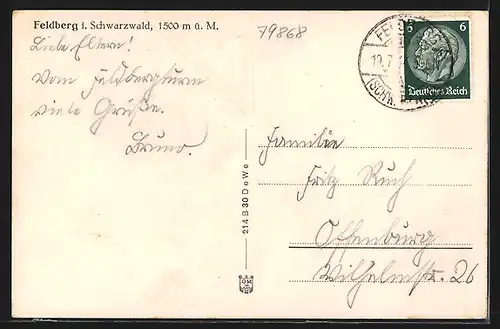 Feldberg i. Schwarzwald, 1500 m ü. M.
79868
Liebe Eltern!
Vom Feldbergturm
viele Grüße.
Bruno.
6 6
Deutsches Reich
19.7.
(SCHW
214 B 30 DeWe
Familie
Fritz Ruch
Offenburg
Wilhelmstr. 26